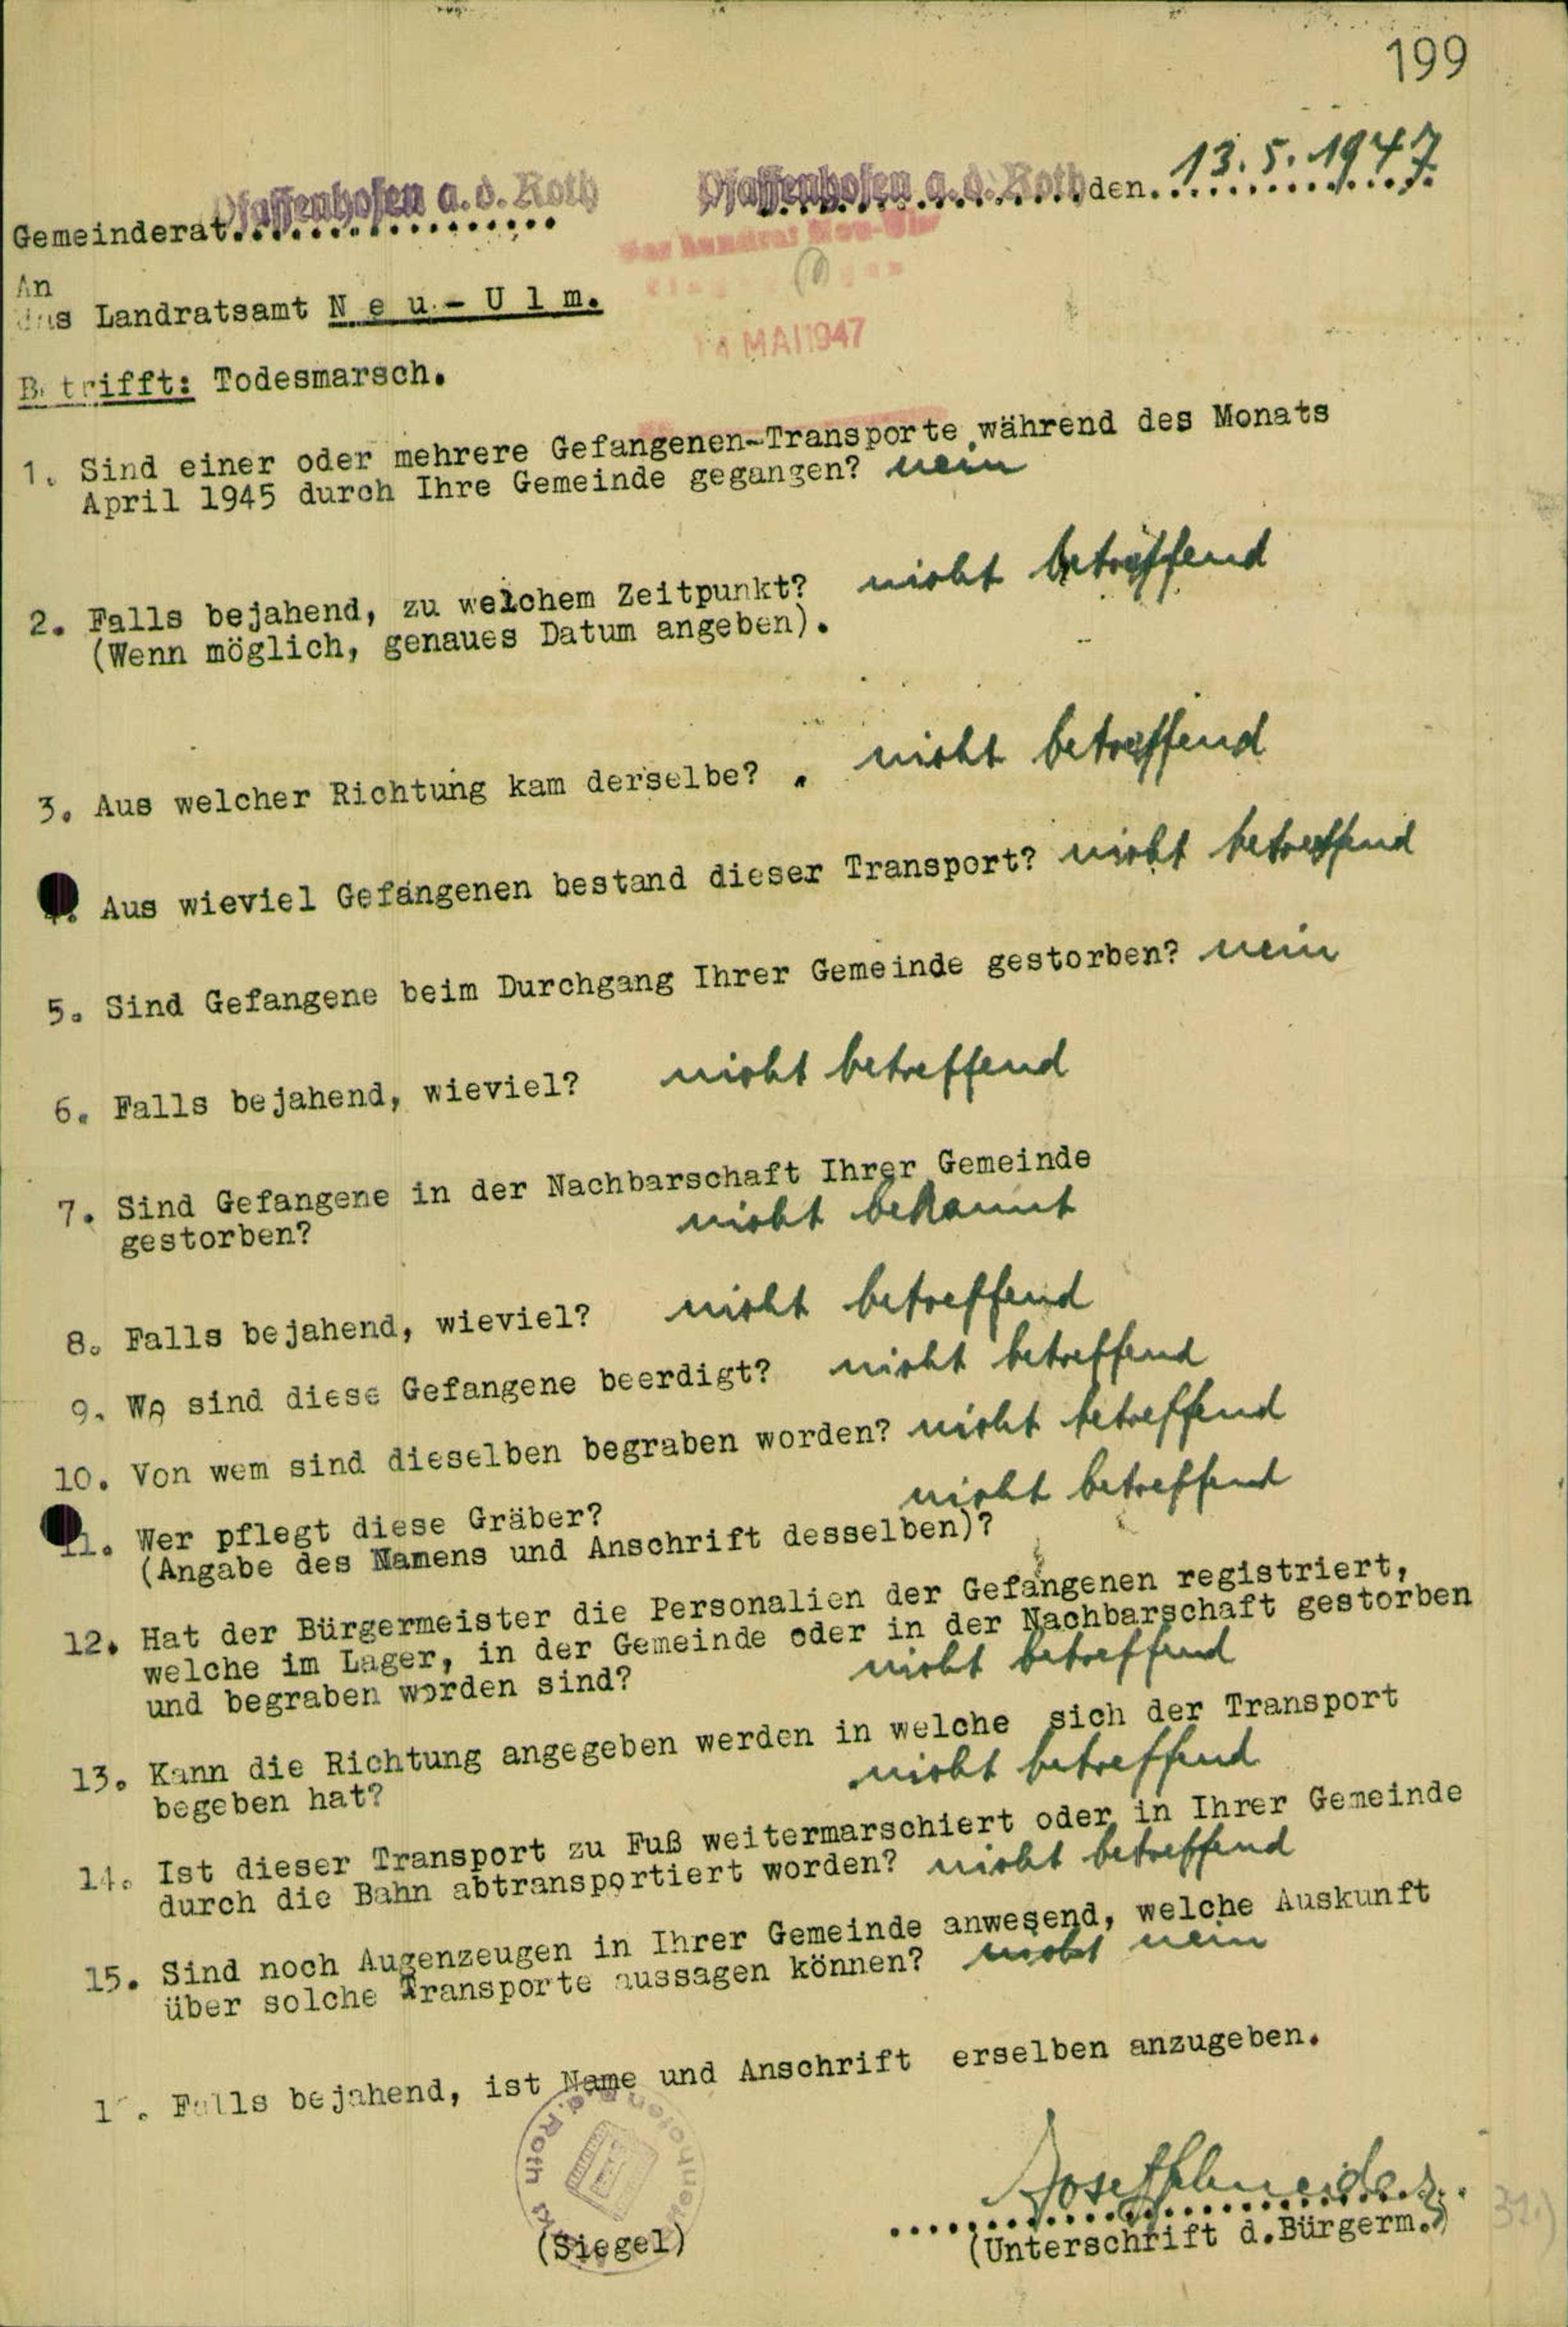 199
Pfaffenhofen a.d. Roth den 13.5.1947
Gemeinderat Pfaffenhofen a.d. Roth
Der Landrat Neu-Ulm
An
das Landratsamt N e u - U l m.
14 MAI 1947
Betrifft: Todesmarsch.
1. Sind einer oder mehrere Gefangenen-Transporte während des Monats
April 1945 durch Ihre Gemeinde gegangen? nein
2. Falls bejahend, zu welchem Zeitpunkt? nicht betreffend
(Wenn möglich, genaues Datum angeben).
3. Aus welcher Richtung kam derselbe? nicht betreffend
Aus wieviel Gefangenen bestand dieser Transport? nicht betreffend
5. Sind Gefangene beim Durchgang Ihrer Gemeinde gestorben? nein
6. Falls bejahend, wieviel? nicht betreffend
7. Sind Gefangene in der Nachbarschaft Ihrer Gemeinde
gestorben? nicht bekannt
8. Falls bejahend, wieviel? nicht betreffend
9. Wo sind diese Gefangene beerdigt? nicht betreffend
10. Von wem sind dieselben begraben worden? nicht betreffend
11. Wer pflegt diese Gräber? nicht betreffend
(Angabe des Namens und Anschrift desselben)?
12. Hat der Bürgermeister die Personalien der Gefangenen registriert,
welche im Lager, in der Gemeinde oder in der Nachbarschaft gestorben
und begraben worden sind? nicht betreffend
13. Kann die Richtung angegeben werden in welche sich der Transport
begeben hat? nicht betreffend
14. Ist dieser Transport zu Fuß weitermarschiert oder in Ihrer Gemeinde
durch die Bahn abtransportiert worden? nicht betreffend
15. Sind noch Augenzeugen in Ihrer Gemeinde anwesend, welche Auskunft
über solche Transporte aussagen können? nicht nein
1 . Falls bejahend, ist Name und Anschrift erselben anzugeben.
a.d. Roth
Josef Schneider
(Siegel)
(Unterschrift d.Bürgerm.)